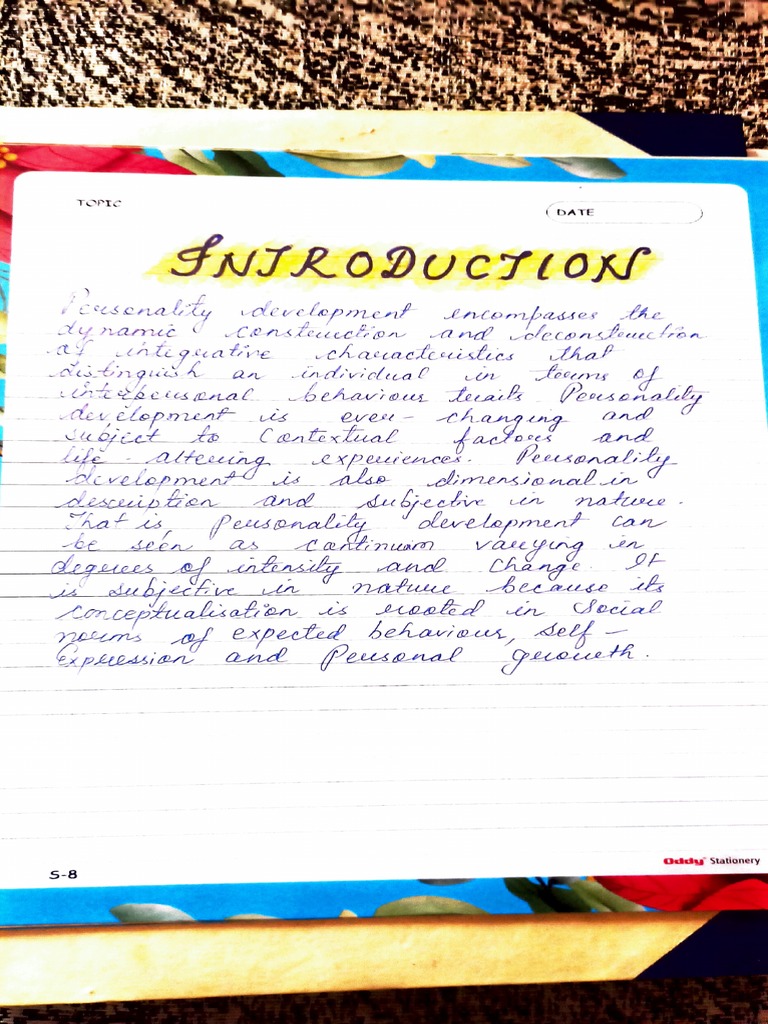 TOPIC
DATE
INTRODUCTION
Personality development encompasses the
dynamic construction and deconstruction
of integrative characteristics that
distinguish an individual in terms of
interpersonal behaviour traits. Personality
development is ever-changing and
subject to Contextual factors and
life-altering experiences. Personality
development is also dimensional in
description and subjective in nature.
That is, Personality development can
be seen as continuum varying in
degrees of intensity and change. It
is subjective in nature because its
conceptualisation is rooted in Social
norms of expected behaviour, Self-
Expression and Personal growth.
S-8
Oddy Stationery